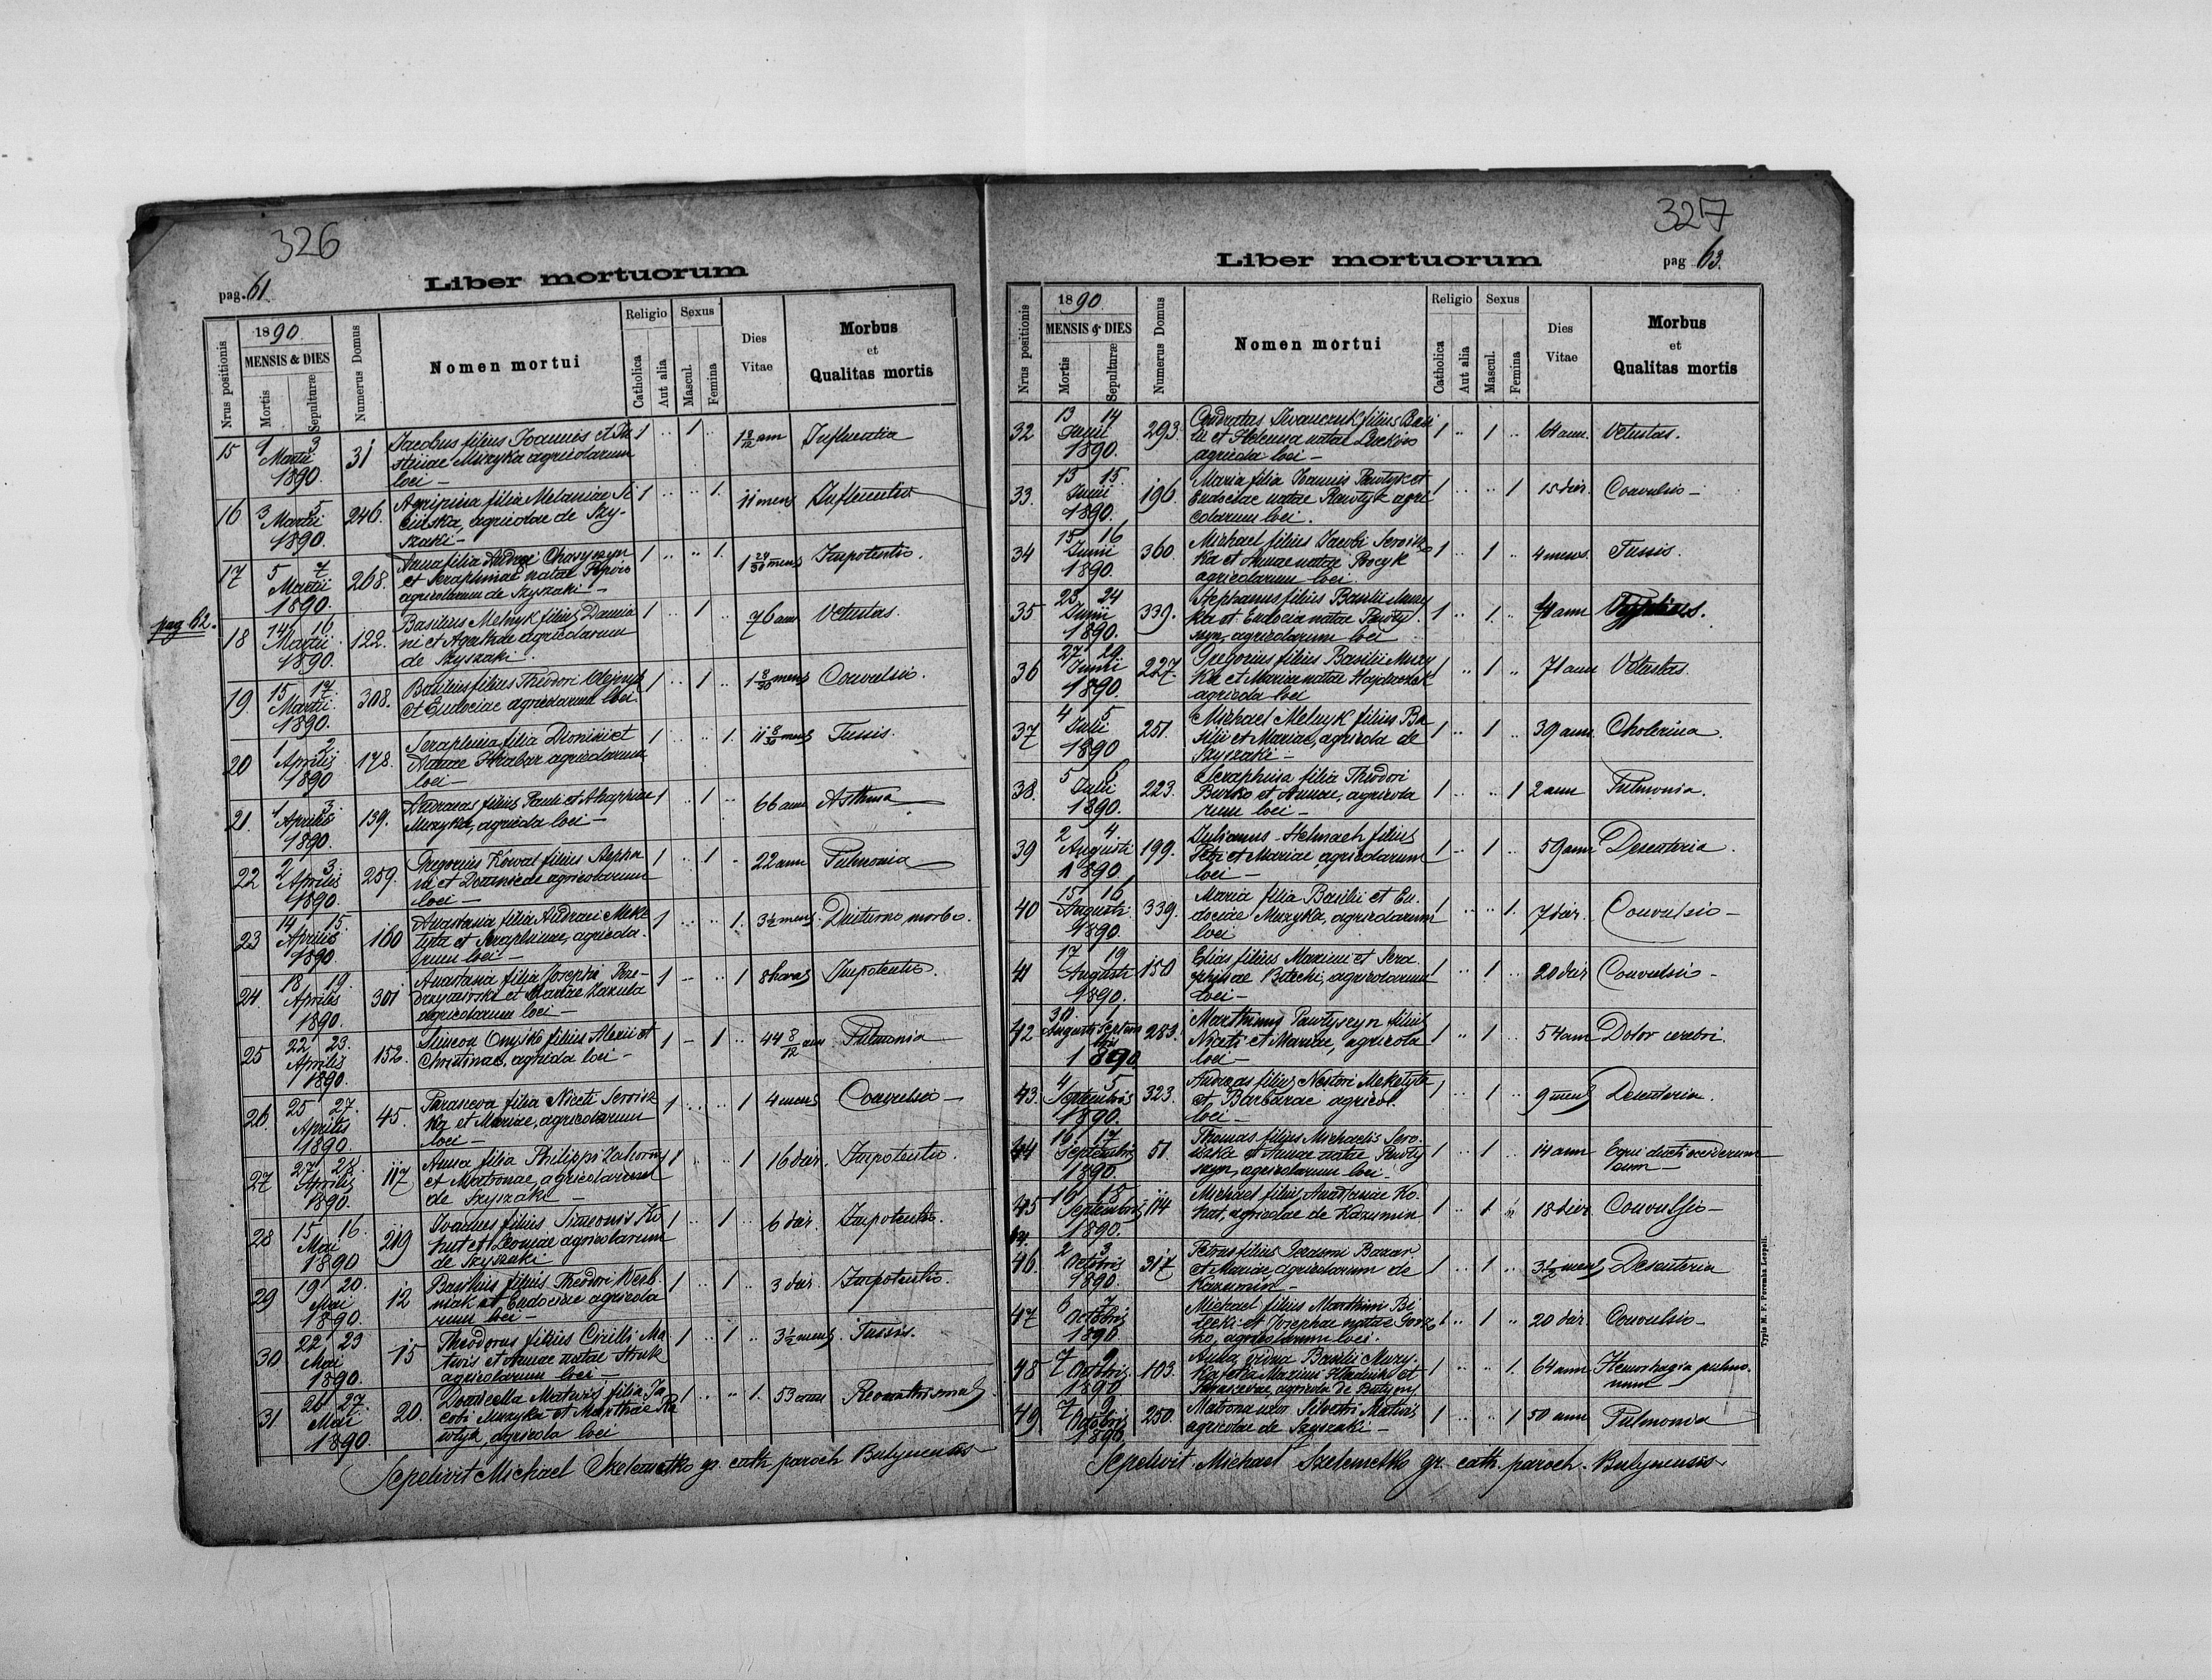 326
Liber mortuorum
pag. 61
Nrus positionis
1890
MENSIS & DIES
Mortis
Sepulturæ
Numerus Domus
Nomen mortui
Religio
Catholica
Aut alia
Sexus
Mascul.
Femina
Dies
Vitae
Morbus
et
Qualitas mortis
15 1 3 Martii 1890. 31 Jacobus filius Joannis et
Muzyka agricolarum
loci – 1 1 1 8/12 ann Influentia
16 3 5 Martii 1890. 246. Agripina filia Melaniae
agricolae de Szy-
szaki – 1 1. 11 mens Influentia
pag 62.
17 5 7 Martii 1890. 268. Anna filia Andreae
et Seraphinae natae
agricolarum de Szyszaki – 1 1. 1 24/30 mens Impotentia.
18 14 16 Martii 1890. 122. Basilius Melnyk filius Damia
ni et Agathae agricolarum
de Szyszaki. 1 1 76 ann Vetustas.
19. 15 17. Martii 1890. 308. Basilius filius Theodori
et Eudociae agricolarum loci. 1 1 1 8/30 mens Convulsio.
20 1 2 Aprilis 1890 178. Seraphina filia Dionisii et
Hrabar agricolarum
loci – 1 1. 11 8/30 mens Tussis.
21. 1 3. Aprilis 1890. 139. filius Pauli et Ahappiae
Muzyka, agricola loci – 1 1 66 ann Asthma
22 2 3. Aprilis 1890. 259. Gregorius Kowal filius Stepha
ni et agricolarum
loci – 1 1 22 ann Pulmonia
23 14 15. Aprilis 1890. 160 Anastasia filia Andreae Meke
tyta et Seraphinae, agricola-
rum loci – 1 1. 3 1/2 mens. Diuturno morbo.
24. 18 19. Aprilis 1890. 301 Anastasia filia Josephi
et Mariae
agricolarum loci – 1 1 8 horas Impotentia.
25 22 23. Aprilis 1890. 152. Simeon Onysko filius Alexii et
Christinae, agricola loci – 1 1 44 8/12 ann Pulmonia
26. 25 27. Aprilis 1890. 45. Parasceva filia Niceti
ka et Mariae, agricolarum
loci – 1 1 4 mens Convulsio –
27 27 28. Aprilis 1890. 117 Anna filia Philippi
et Matronae, agricolarum
de Szyszaki – 1 1 16 dier. Impotentia.
28 15 16. Mai 1890 219 Joannes filius Simeonis Ko
hut et agricolarum
de Szyszaki 1 1 6 dier. Impotentia.
29 19 20. Mai 1890. 12 Basilius filius Theodori Werb
niak et Eudociae agricola
rum loci – 1 1 3 dier. Impotentia.
30 22 23 Mai 1890. 15 Theodorus filius Cirilli Ma
twis et Annae natae
agricolarum loci. 1 1 3 1/2 mens. Tussis.
31 26 27. Mai 1890. 20. Matwis filia Ja
cobi Muzyka et Marthae
agricola loci 1 1. 53 ann
Sepelivit Michael Szelemetko gr. cath. paroch Butynensis
327
Liber mortuorum
pag 63.
Nrus positionis
1890.
MENSIS & DIES
Mortis
Sepulturæ
Numerus Domus
Nomen mortui
Religio
Catholica
Aut alia
Sexus
Mascul.
Femina
Dies
Vitae
Morbus
et
Qualitas mortis
32 13 14 Junii 1890. 293. Iwanczuk filius Basi
lii et Helenna natae
agricola loci – 1 1 64 ann. Vetustas.
33. 13 15. Junii 1890. 196. Maria filia Joannis Pawlyk et
Eudociae natae agri
colarum loci. 1 1 15 dier. Convulsio –
34 15 16 Junii 1890. 360. Michael filius Jacobi
ka et Annae natae
agricolarum loci. 1 1 4 mens. Tussis.
35 23 24 Junii 1890. 339. Stephanus filius Basilii Muzy
ka et Eudocia natae Pawty
szyn, agricolarum loci 1 1. ann Typhus.
36 27 29 Junii 1890. 227. Gregorius filius Basilii Muzy
ka et Mariae natae
agricola loci 1 1 71 ann Vetustas.
37 4 5 Julii 1890 251. Michael Melnyk filius Ba
silii et Mariae, agricola de
Szyszaki – 1 1 39 ann Cholerina.
38. 5 6 Julii 1890. 223. Seraphina filia Theodori
et Annae, agricola
rum loci – 1 1 2 ann Pulmonia.
39 2 4 Augusti 1890. 199. Julianus Helmach filius
Petri et Mariae agricolarum
loci – 1 1 59 ann Desenteria.
40 15 16 Augusti 1890. 339. Maria filia Basilii et Eu
dociae Muzyka, agricolarum
loci 1 1. 7 dier. Convulsio –
41 17 19 Augusti 1890. 150 Elias filius Maximi et Sera
phinae agricolarum
loci – 1 1 20 dier Convulsio –
42 30. 1 Augusti Septembris 1890. 283. Marthinus Pawtyszyn filius
Niceti et Mariae, agricola
loci – 1 1 54 ann Dolor cerebri.
43. 4 5 Septembris 1890. 323. Andreas filius Nestori Meketyta
et Barbarae agricol.
loci – 1 1 9 mens Desenteria.
44 16 17 Septembris 1890. 51. Thomas filius Michaelis
et Annae natae Pawty
szyn, agricolarum loci – 1 1 14 ann Equi occiderunt
eum –
45 16 18 Septembris 1890. 114 Michael filius Anastasiae Ko
hut, agricolae de Kazumin 1 1 18 dier Convulsio –
46. 2 3 Octobris 1890. 317 Petrus filius Bazar
et Mariae agricolarum de
Kazumin – 1 1 3 1/2 mens Desenteria
47 6 7 Octobris 1890 Michael filius Marthini Bi
lecki et Josephae natae
agricolarum loci. 1 1 20 dier Convulsio –
48 7 9 Octobris 1890 103. Anna vidua Basilii Muzy-
ka filia Maximi et
Parascevae, agricola de Butyny 1 1. 64 ann Hemorhagia pulmo-
num –
49 7 9 Octobris 1890. 250. Matrona uxor Silvestri Matwis
agricolae de Szyszaki – 1 1 50 ann Pulmonia
Sepelivit Michael Szelemetko gr. cath. paroch. Butynensis
Typis M. F. Poremba Leopoli.